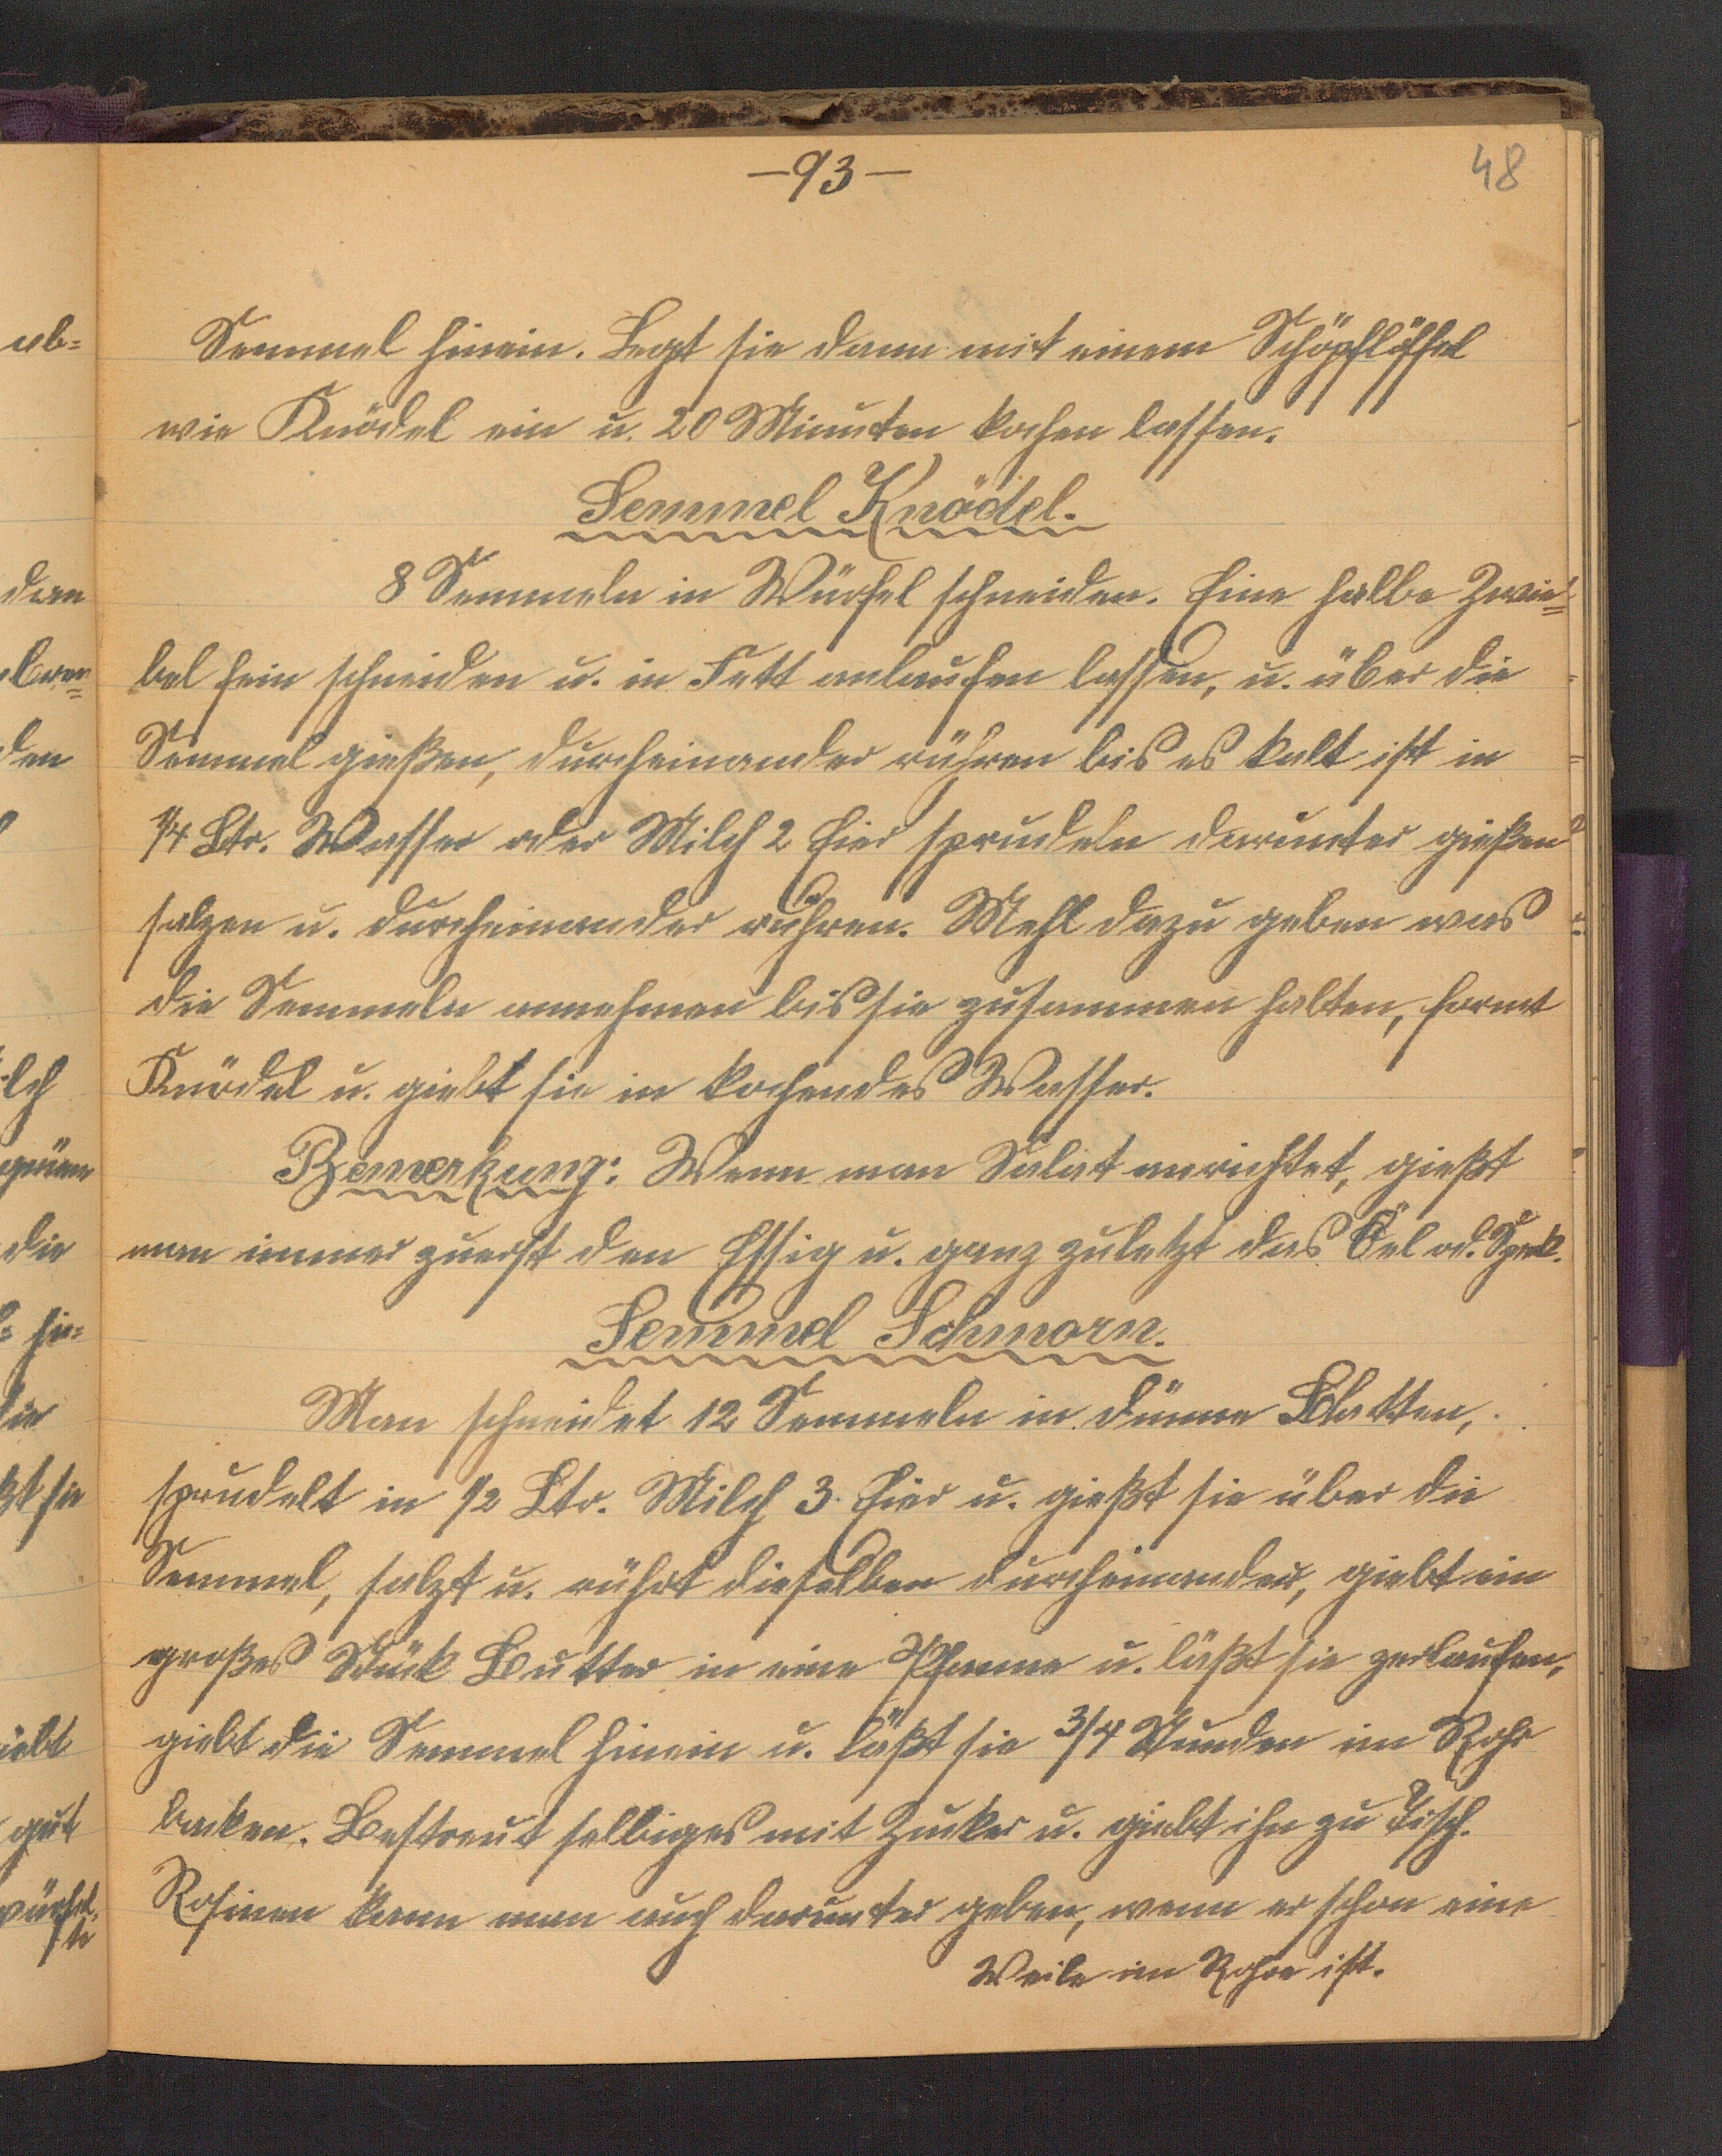 -93-
48
Semmel hinein. Legt sie dann mit einem Schöpflöffel
wie Knödel ein u. 20 Minuten kochen lassen.
Semmel Knödel.
8 Semmeln in Würfel schneiden. Eine halbe Zwie=
bel fein schneiden u. in Fett anlaufen lassen, u. über die
Semmel gießen, durcheinander rühren bis es kalt ist in
1/4 Ltr. Wasser oder Milch 2 Eier sprudeln darunter gießen
salzen u. durcheinander rühren. Mehl dazu geben was
die Semmeln annehmen bis sie zusammen halten, formt
Knödel u. giebt sie in kochendes Wasser.
Bemerkung: Wenn man Salat anrichtet, gießt
man immer zuerst den Essig u. ganz zuletzt das Öel od. Speck.
Semmel Schmorn.
Man schneidet 12 Semmeln in dünne Blatten,
sprudelt in 1/2 Ltr. Milch 3 Eier u. gießt sie über die
Semmel, salzt u. rührt dieselben durcheinander, giebt ein
großes Stück Butter in eine Pfanne u. läßt sie zerlaufen,
giebt die Semmel hinein u. läßt sie 3/4 Stunden im Rohr
backen. Bestreut selbiges mit Zucker u. giebt ihn zu Tisch.
Rosinen kann man auch darunter geben, wenn er schon eine
Weile im Rohre ist.
ab=
den
den
lch
die
sie
giebt
gut